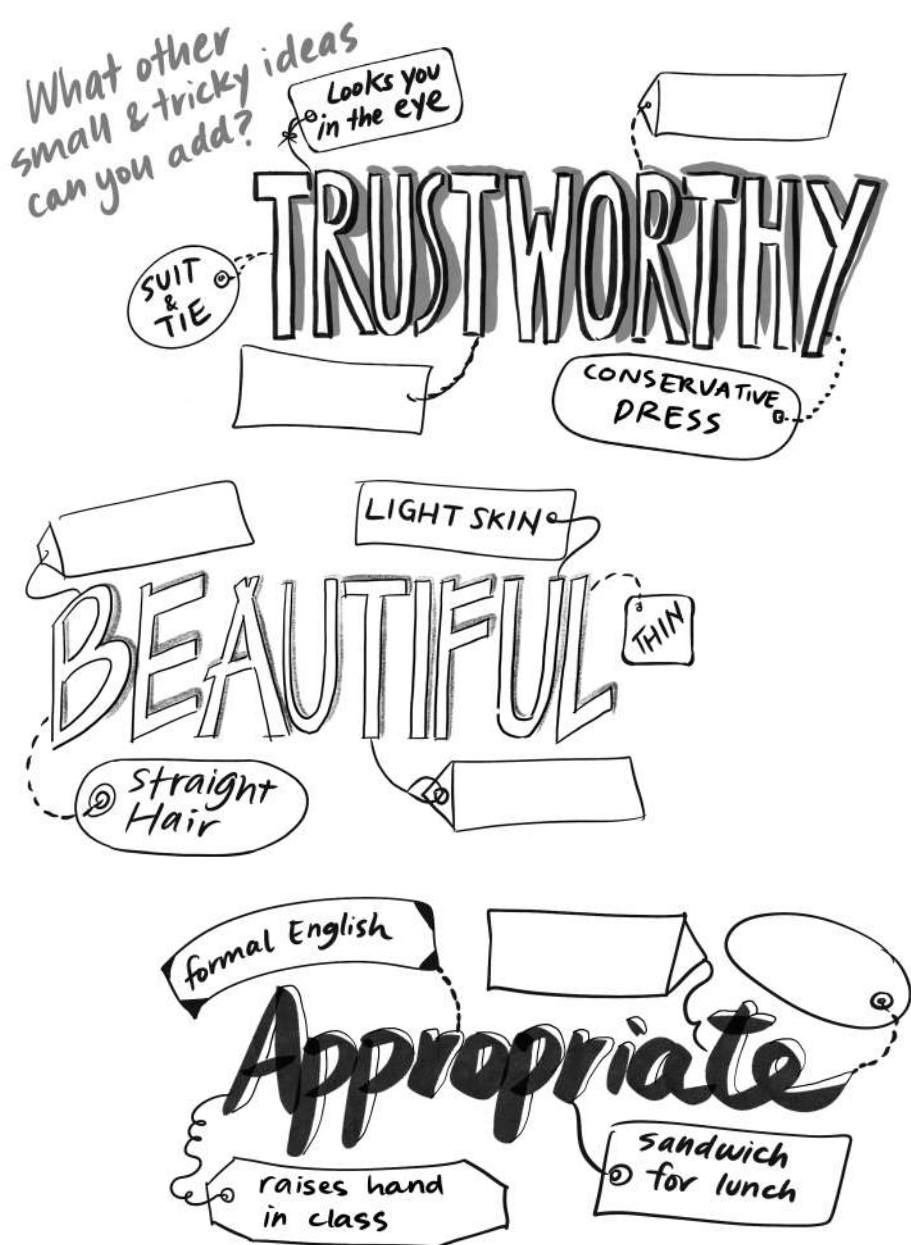 What other
small & tricky ideas
can you add?
Looks you
in the eye
TRUSTWORTHY
SUIT
&
TIE
CONSERVATIVE
DRESS
LIGHT SKIN
BEAUTIFUL
THIN
Straight
Hair
formal English
Appropriate
raises hand
in class
sandwich
for lunch